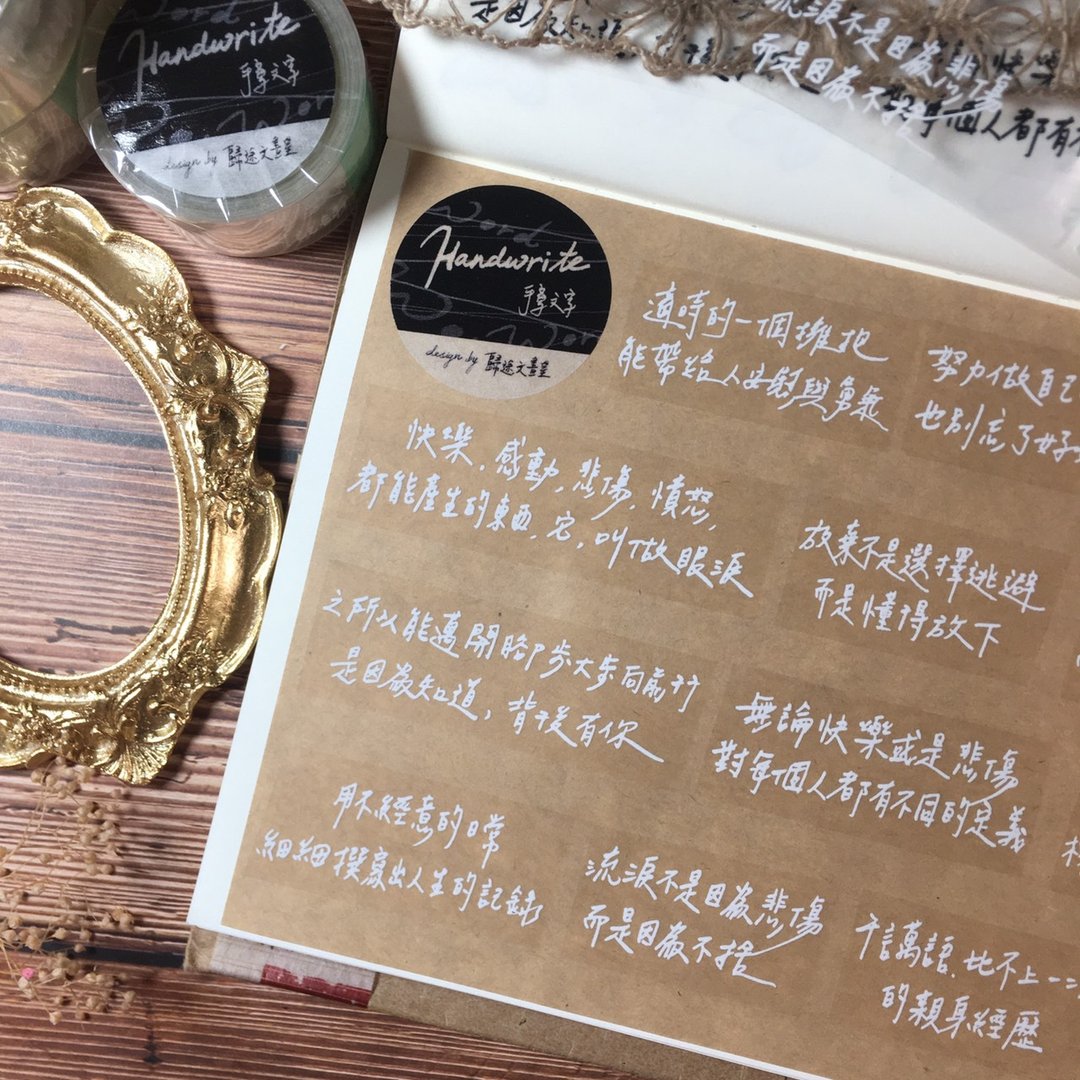 Handwrite
手寫文字
design by 歸途文書皇
是因為
流淚不是因為悲傷
而是因為不捨
快樂
每個人都有
Word
Handwrite
手寫文字
design by 歸途文書皇
適時的一個擁抱
能帶給人安慰與勇氣
努力做自己
也別忘了好
快樂,感動,悲傷,憤怒,
都能產生的東西,它,叫做眼淚
放棄不是選擇逃避
而是懂得放下
之所以能邁開腳步大步向前行
是因為知道,背後有你
無論快樂或是悲傷
對每個人都有不同的定義
用不經意的日常
細細撰寫出人生的記錄
流淚不是因為悲傷
而是因為不捨
千言萬語,比不上一
的親身經歷